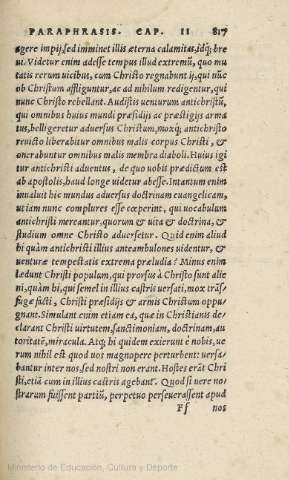 PARAPHRASIS. CAP. II 817
agere impij, sed imminet illis æterna calamitas, idq; bre
ui. Videtur enim adesse tempus illud extremū, quo mu
tatis rerum uicibus, cum Christo regnabunt ij, qui nūc
ob Christum affliguntur, ac ad nihilum redigentur, qui
nunc Christo rebellant. Audistis uenturum antichristū,
qui omnibus huius mundi præsidijs ac præstigijs arma
tus, belligeretur aduersus Christum, moxq; antichristo
reuicto liberabitur omnibus malis corpus Christi, &
onerabuntur omnibus malis membra diaboli. Huius igi
tur antichristi aduentus, de quo uobis prædictum est
ab apostolis, haud longe uidetur abesse. Intantum enim
inualuit hic mundus aduersus doctrinam euangelicam,
ut iam nunc complures esse cœperint, qui uocabulum
antichristi mereantur. quorum & uita & doctrina, &
studium omne Christo aduersetur. Quid enim aliud
hi quàm antichristi illius anteambulones uidentur, &
uenturæ tempestatis extrema præludia? Minus enim
lædunt Christi populum, qui prorsus à Christo sunt alie
ni, quàm hi, qui semel in illius castris uersati, mox trās-
fugæ facti, Christi præsidijs & armis Christum oppu
gnant. Simulant enim etiam ea, quæ in Christianis de
clarant Christi uirtutem, sanctimoniam, doctrinam, au
toritatē, miracula. Atq; hi quidem exierunt è nobis, ue
rum nihil est quod uos magnopere perturbent: uersa
bantur inter nos, sed nostri non erant. Hostes erāt Chri
sti, etiā cum in illius castris agebant. Quod si uere no-
strarum fuissent partiū, perpetuo perseuerassent apud
Ff nos
Ministerio de Educación, Cultura y Deporte